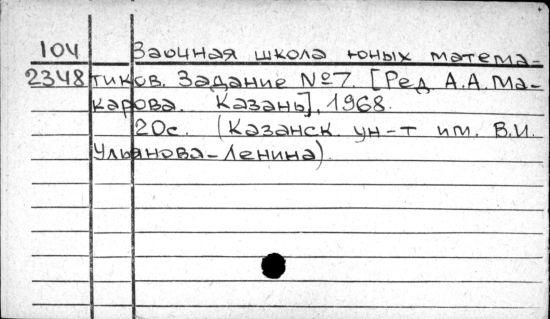 104 Заочная школа юных матема-
2348 тиков. Задание №7. [Ред. А.А.Ма-
карова. Казань], 1968.
20с. (Казанск. ун-т им. В.И.
Ульянова-Ленина).